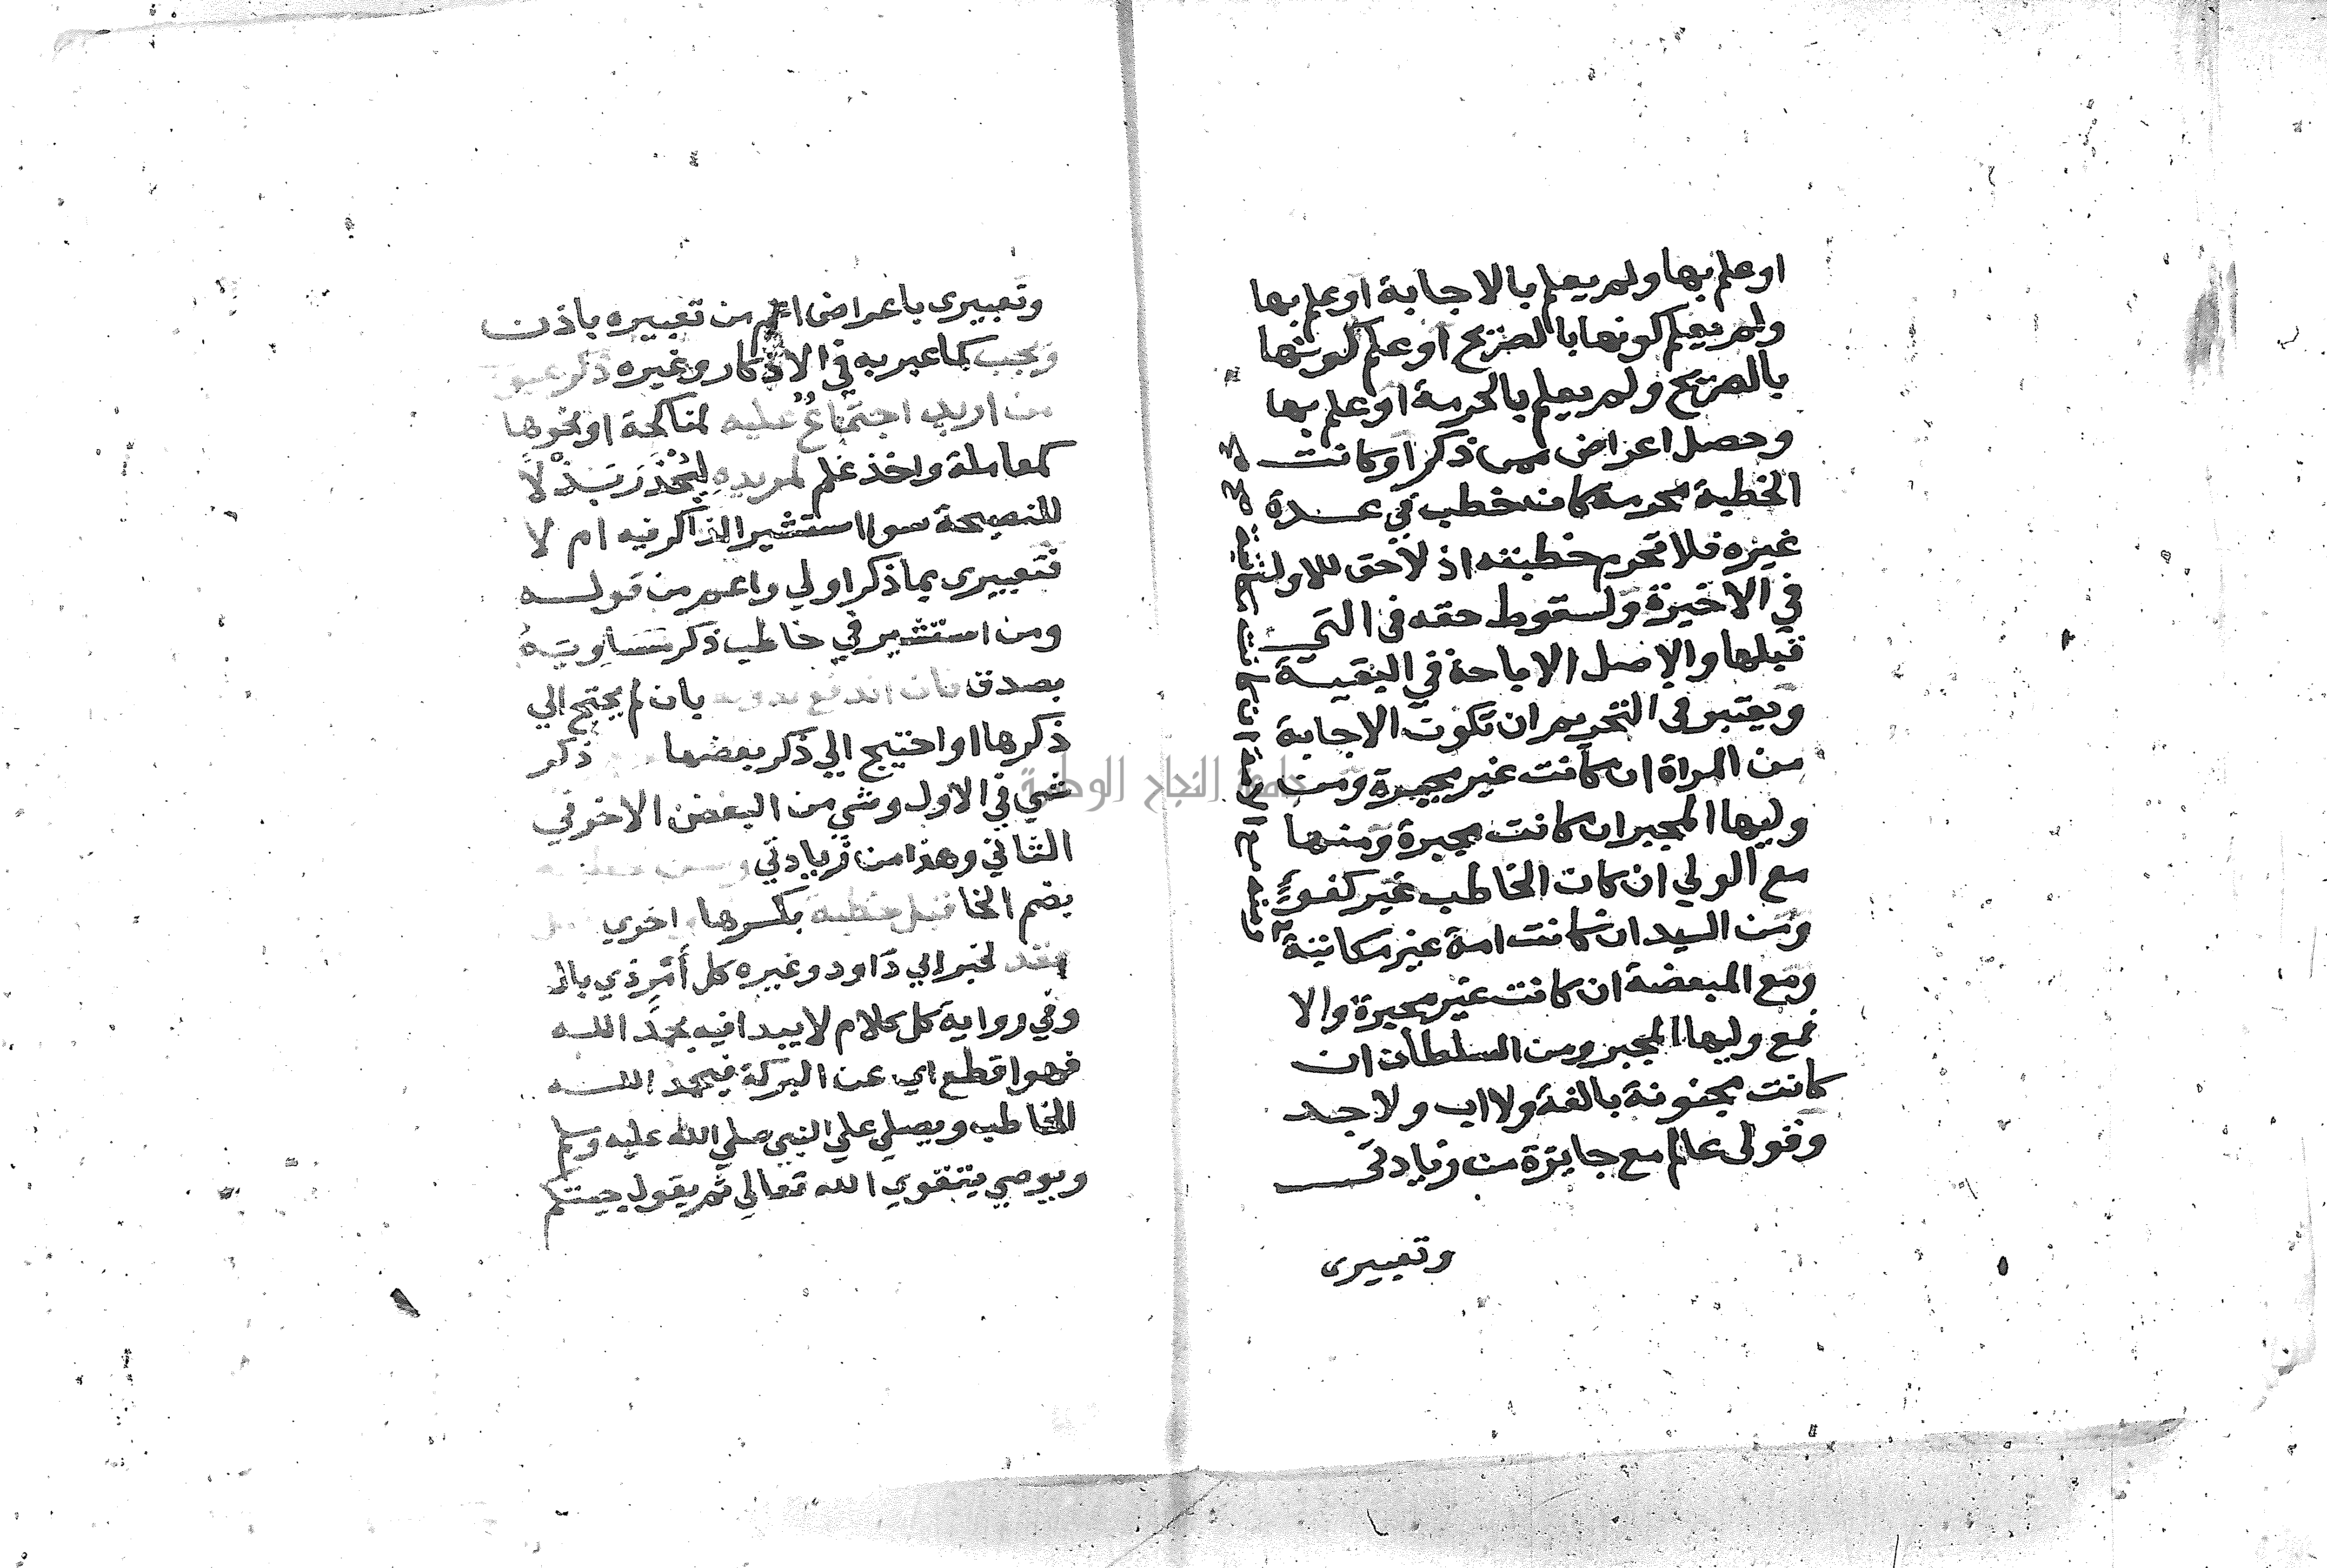 او علم بها ولم يعلم بالاجابة او علم بها
ولم يعلم كونها بالصريح او علم كونها
بالصريح ولم يعلم بالحرمة او علم بها
وحصل اعراض ممن ذكر او كانت
الخطبة محرمة كان خطب في عدة
غيره فلا تحرم خطبته اذ لا حق للاول
في الاخيرة ولسقوط حقه في التي
قبلها والاصل الاباحة في البقية
ويعتبر في التحريم ان تكون الاجابة
من المراة ان كانت غير مجبرة ومن
وليها المجبر ان كانت مجبرة ومنها
مع الولي ان كان الخاطب غير كفوءٍ
ومن السيد ان كانت امة غير مكاتبة
ومع المبعضة ان كانت غير مجبرة والا
فمع وليها المجبر ومن السلطان ان
كانت مجنونة بالغة ولا اب ولا جد
وقولي عالم مع جايزة من زيادتي
وتعبيري
وتعبيري باعراض اعم من تعبيره باذن
ويجب كما عبر به في الاذكار وغيره ذكر عيوب
من اريد اجتماعٌ عليه لمناكحة او نحوها
كمعاملة واخذ علم لمريده لِيُحْذَرَ بَذْلًا
للنصيحة سوا استشير الذاكر فيه ام لا
فتعبيري بما ذكر اولي واعم من قوله
ومن استشير في خاطب ذكر مَسَاوِيَهُ
بصدق فان اندفع بدونه بان لم يحتج الي
ذكرها او احتيج الي ذكر بعضها ذكر
شي في الاول وشي من البعض الاخر في
الثاني وهذا من زيادتي وسن خطبة
بضم الخا قبل خطبة بكسرها واخري قبل
عقد لخبر ابي داود وغيره كل أَمْرٍ ذي بال
وفي رواية كل كلام لا يبدا فيه بحمد الله
فهو اقطع اي عن البركة فيحمد الله
الخاطب ويصلي علي النبي صلي الله عليه وسلم
ويوصي بتقوي الله تعالي ثم يقول جيتكم
جامعة النجاح الوطنية